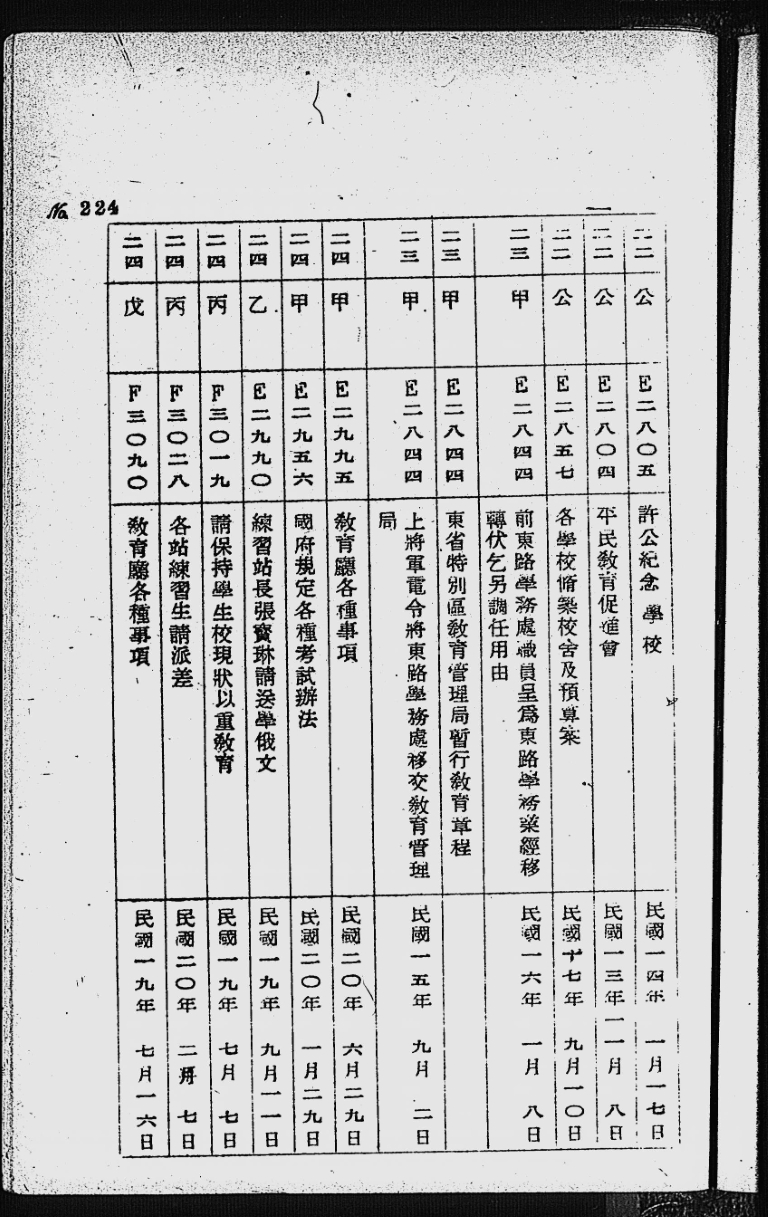 No 224
一
二二 公 E二八〇五 許公紀念學校 民國一四年 一月一七日
二二 公 E二八〇四 平民教育促進會 民國一三年一一月 八日
二二 公 E二八五七 各學校脩築校舍及預算案 民國十七年 九月一〇日
二三 甲 E二八四四 前東路學務處職員呈爲東路學務業經移
轉伏乞另調任用由 民國一六年 一月 八日
二三 甲 E二八四四 東省特別區教育管理局暫行教育章程
二三 甲 E二八四四 上將軍電令將東路學務處移交教育管理
局 民國一五年 九月 二日
二四 甲 E二九九五 教育廳各種事項 民國二〇年 六月二九日
二四 甲 E二九五六 國府規定各種考試辦法 民國二〇年 一月二九日
二四 乙 E二九九〇 練習站長張寳琳請送學俄文 民國一九年 九月一一日
二四 丙 F三〇一九 請保持學生校現狀以重教育 民國一九年 七月 七日
二四 丙 F三〇二八 各站練習生請派差 民國二〇年 二月 七日
二四 戊 F三〇九〇 教育廳各種事項 民國一九年 七月一六日